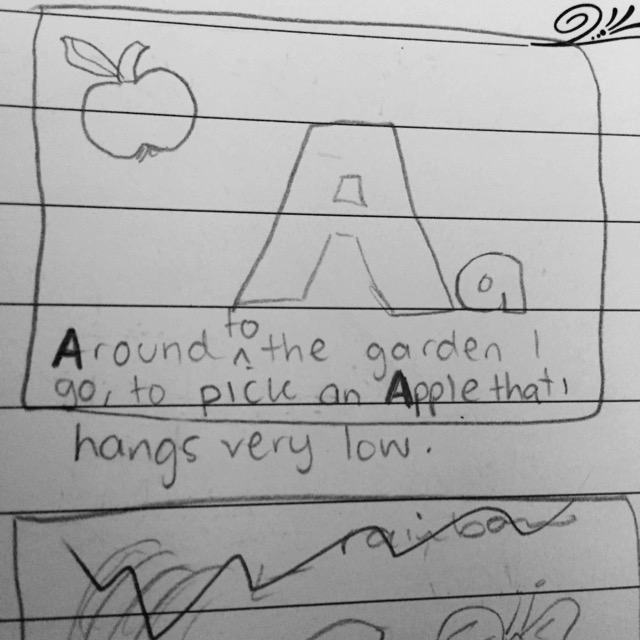 A a
to
Around ^ the garden I
go, to pick an Apple that
hangs very low.
rainbow